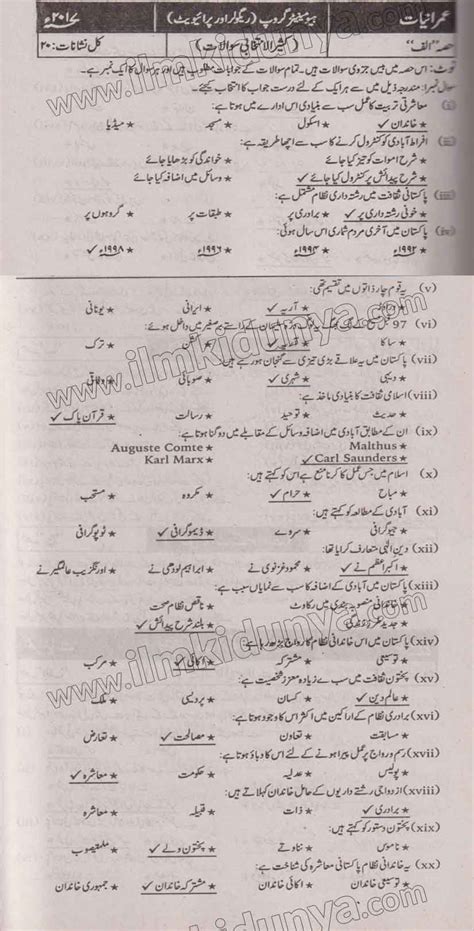 عمرانیات
ہیومینٹیز گروپ (ریگولر اور پرائیویٹ)
۲۰۱۷ء
حصہ "الف"
(کثیر الانتخابی سوالات)
کل نشانات: ۲۰
نوٹ: اس حصہ میں بیس جزوی سوالات ہیں۔ تمام سوالات کے جوابات مطلوب ہیں اور ہر سوال کا ایک نمبر ہے۔
سوال نمبر۱: مندرجہ ذیل میں سے ہر ایک کے لئے درست جواب کا انتخاب کیجئے۔
(i) معاشرتی تربیت کا عمل سب سے بنیادی اس ادارے میں ہوتا ہے:
★ خاندان ✓ ★ اسکول ★ مسجد ★ میڈیا
(ii) افراط آبادی کو کنٹرول کرنے کا سب سے اچھا طریقہ ہے:
★ شرح اموات کو تیز کیا جائے ★ خواندگی کو بڑھایا جائے
★ شرح پیدائش پر کنٹرول کیا جائے ✓ ★ وسائل میں اضافہ کیا جائے
(iii) پاکستانی ثقافت میں رشتہ داری نظام مشتمل ہے:
★ خونی رشتہ داری پر ✓ ★ برادری پر ★ طبقات پر ★ گروہوں پر
(iv) پاکستان میں آخری مردم شماری اس سال ہوئی:
★ ۱۹۹۲ء ★ ۱۹۹۴ء ★ ۱۹۹۶ء ★ ۱۹۹۸ء ✓
(v) یہ قوم چار ذاتوں میں تقسیم تھی:
★ آریہ ✓ ★ ایرانی ★ یونانی
(vi) 97 قبل مسیح کے راستے برصغیر میں داخل ہوئے:
★ ساکا ★ ترک
(vii) پاکستان میں یہ علاقے بڑی تیزی سے گنجان ہو رہے ہیں:
★ دیہی ★ شہری ✓ ★ صوبائی ★ وفاقی
(viii) اسلامی ثقافت کا بنیادی ماخذ ہے:
★ حدیث ★ توحید ★ رسالت ★ قرآن پاک ✓
(ix) ان کے مطابق آبادی میں اضافہ وسائل کے مقابلے میں دوگنا ہوتا ہے:
Auguste Comte ★ Malthus ★
Karl Marx ★ Carl Saunders ★ ✓
(x) اسلام میں جس عمل کا کرنا منع ہے اس کو کہتے ہیں:
★ مباح ★ حرام ✓ ★ مکروہ ★ مستحب
(xi) آبادی کے مطالعہ کو کہتے ہیں:
★ جیوگرافی ★ سروے ★ ڈیموگرافی ✓ ★ ٹوپوگرافی
(xii) دین الٰہی متعارف کرایا تھا:
★ اکبر اعظم نے ✓ ★ محمود غزنوی نے ★ ابراہیم لودھی نے ★ اورنگزیب عالمگیر نے
(xiii) پاکستان میں آبادی کے اضافہ کا سب سے نمایاں سبب ہے:
★ خاندانی منصوبہ بندی میں رکاوٹ ★ ناقص نظام صحت
★ جدید طرز زندگی ★ بلند شرح پیدائش ✓
(xiv) پاکستان میں اس خاندانی نظام کا رواج بڑھ رہا ہے:
★ توسیعی ★ مشترکہ ★ اکائی ✓ ★ مرکب
(xv) پختون ثقافت میں سب سے زیادہ معزز شخصیت ہے:
★ عالم دین ✓ ★ کسان ★ پردیسی ★ ملک
(xvi) برادری نظام کے اراکین میں اکثر اس کا وجود ہوتا ہے:
★ مسابقت ★ تعاون ★ مصالحت ✓ ★ تعارض
(xvii) رسم و رواج پر عمل پیرا ہونے کے لئے اس کا دباؤ ہوتا ہے:
★ پولیس ★ عدلیہ ★ حکومت ★ معاشرہ ✓
(xviii) ازدواجی رشتے داریوں کے حامل خاندان کہلاتے ہیں:
★ برادری ✓ ★ ذات ★ قبیلہ ★ معاشرہ
(xix) پختون دستور کو کہتے ہیں:
★ ناموس ★ ننواتے ★ پختون ولے ✓
(xx) یہ خاندانی نظام پاکستانی معاشرہ کی شناخت ہے:
★ توسیعی خاندان ★ اکائی خاندان ★ مشترکہ خاندان ✓ ★ جمہوری خاندان
www.ilmkidunya.com
www.ilmkidunya.com
www.ilmkidunya.com
www.ilmkidunya.com